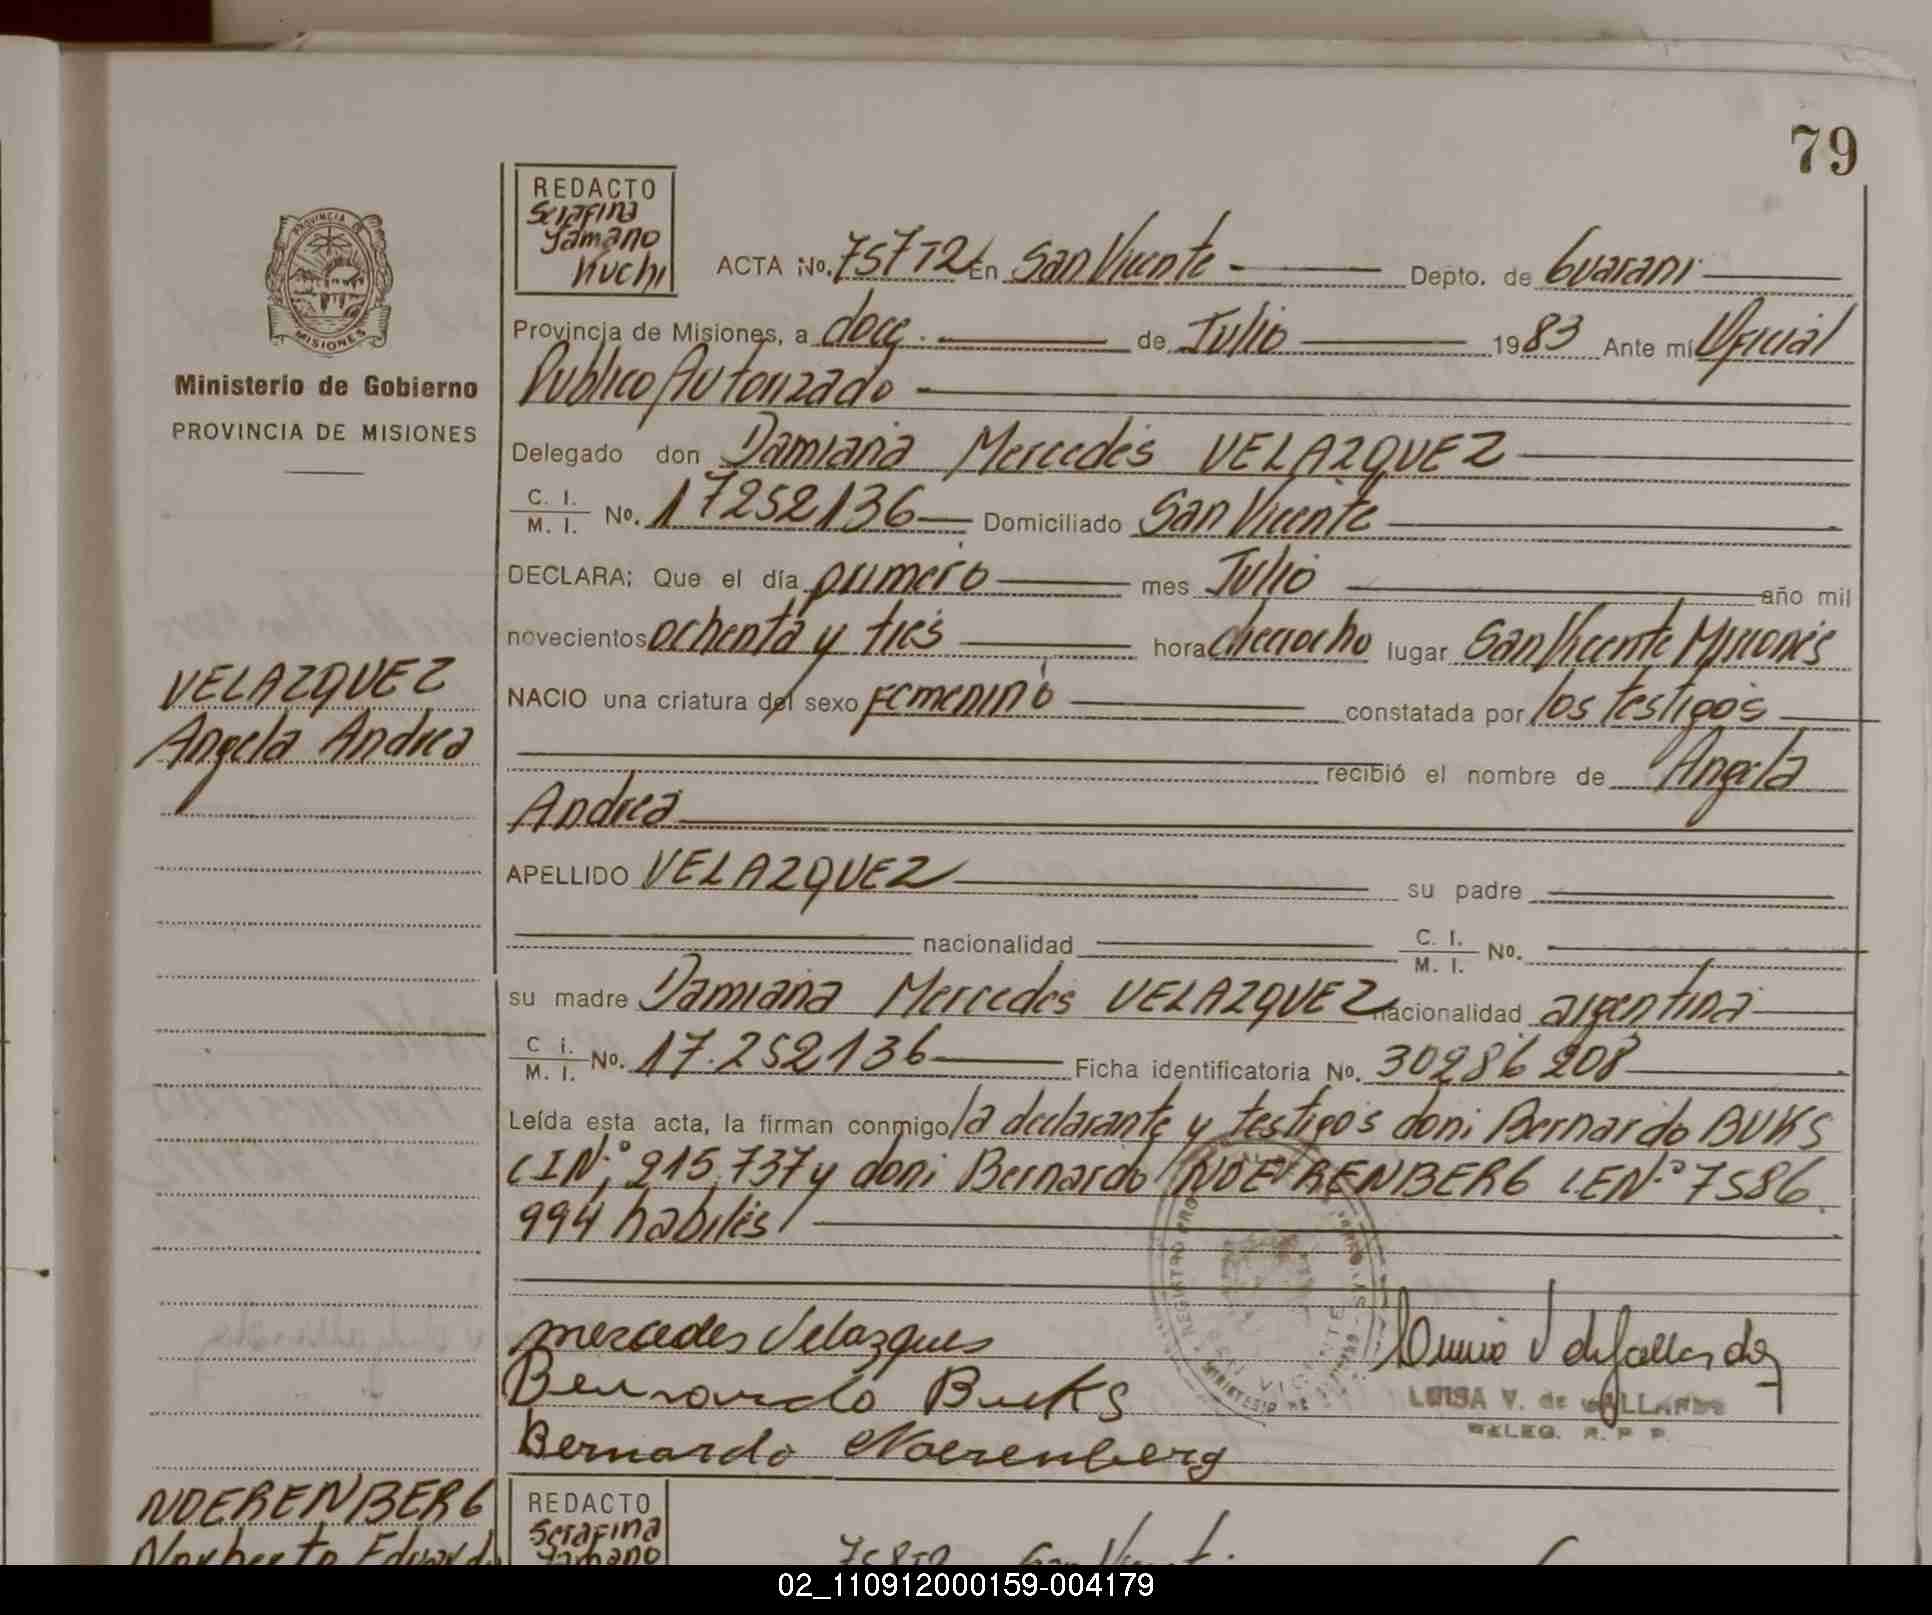 79
PROVINCIA DE
MISIONES
Ministerio de Gobierno
PROVINCIA DE MISIONES
VELAZQUEZ
Angela Andrea
REDACTO
Serafina
Tamaño
Kuchi
ACTA No. 757T2 En San Vicente Depto. de Guarani
Provincia de Misiones, a doce de Julio 1983 Ante mí Oficial
Publico Autorizado
Delegado don Damiana Mercedes VELAZQUEZ
C. I. / M. I. No. 17252136 Domiciliado San Vicente
DECLARA: Que el día primero mes Julio año mil
novecientos ochenta y tres hora dieciocho lugar San Vicente Misiones
NACIO una criatura del sexo Femenino constatada por los testigos
recibió el nombre de Angela
Andrea
APELLIDO VELAZQUEZ su padre
nacionalidad C. I. / M. I. No.
su madre Damiana Mercedes VELAZQUEZ nacionalidad argentina
C i. / M. I. No. 17.252136 Ficha identificatoria No. 30286208
Leída esta acta, la firman conmigo la declarante y testigos don: Bernardo BUKS
CIN:° 215.737 y don: Bernardo NOERENBERG LEN:° 7586
994 habiles
mercedes Velazques
Bernardo Buks
Bernardo Noerenberg
LUISA V. de GALLARDO
DELEG. R. P. P.
NOERENBERG
Norberto Eduardo
REDACTO
Serafina
Tamaño
758T2 San Vicente
02_110912000159-004179